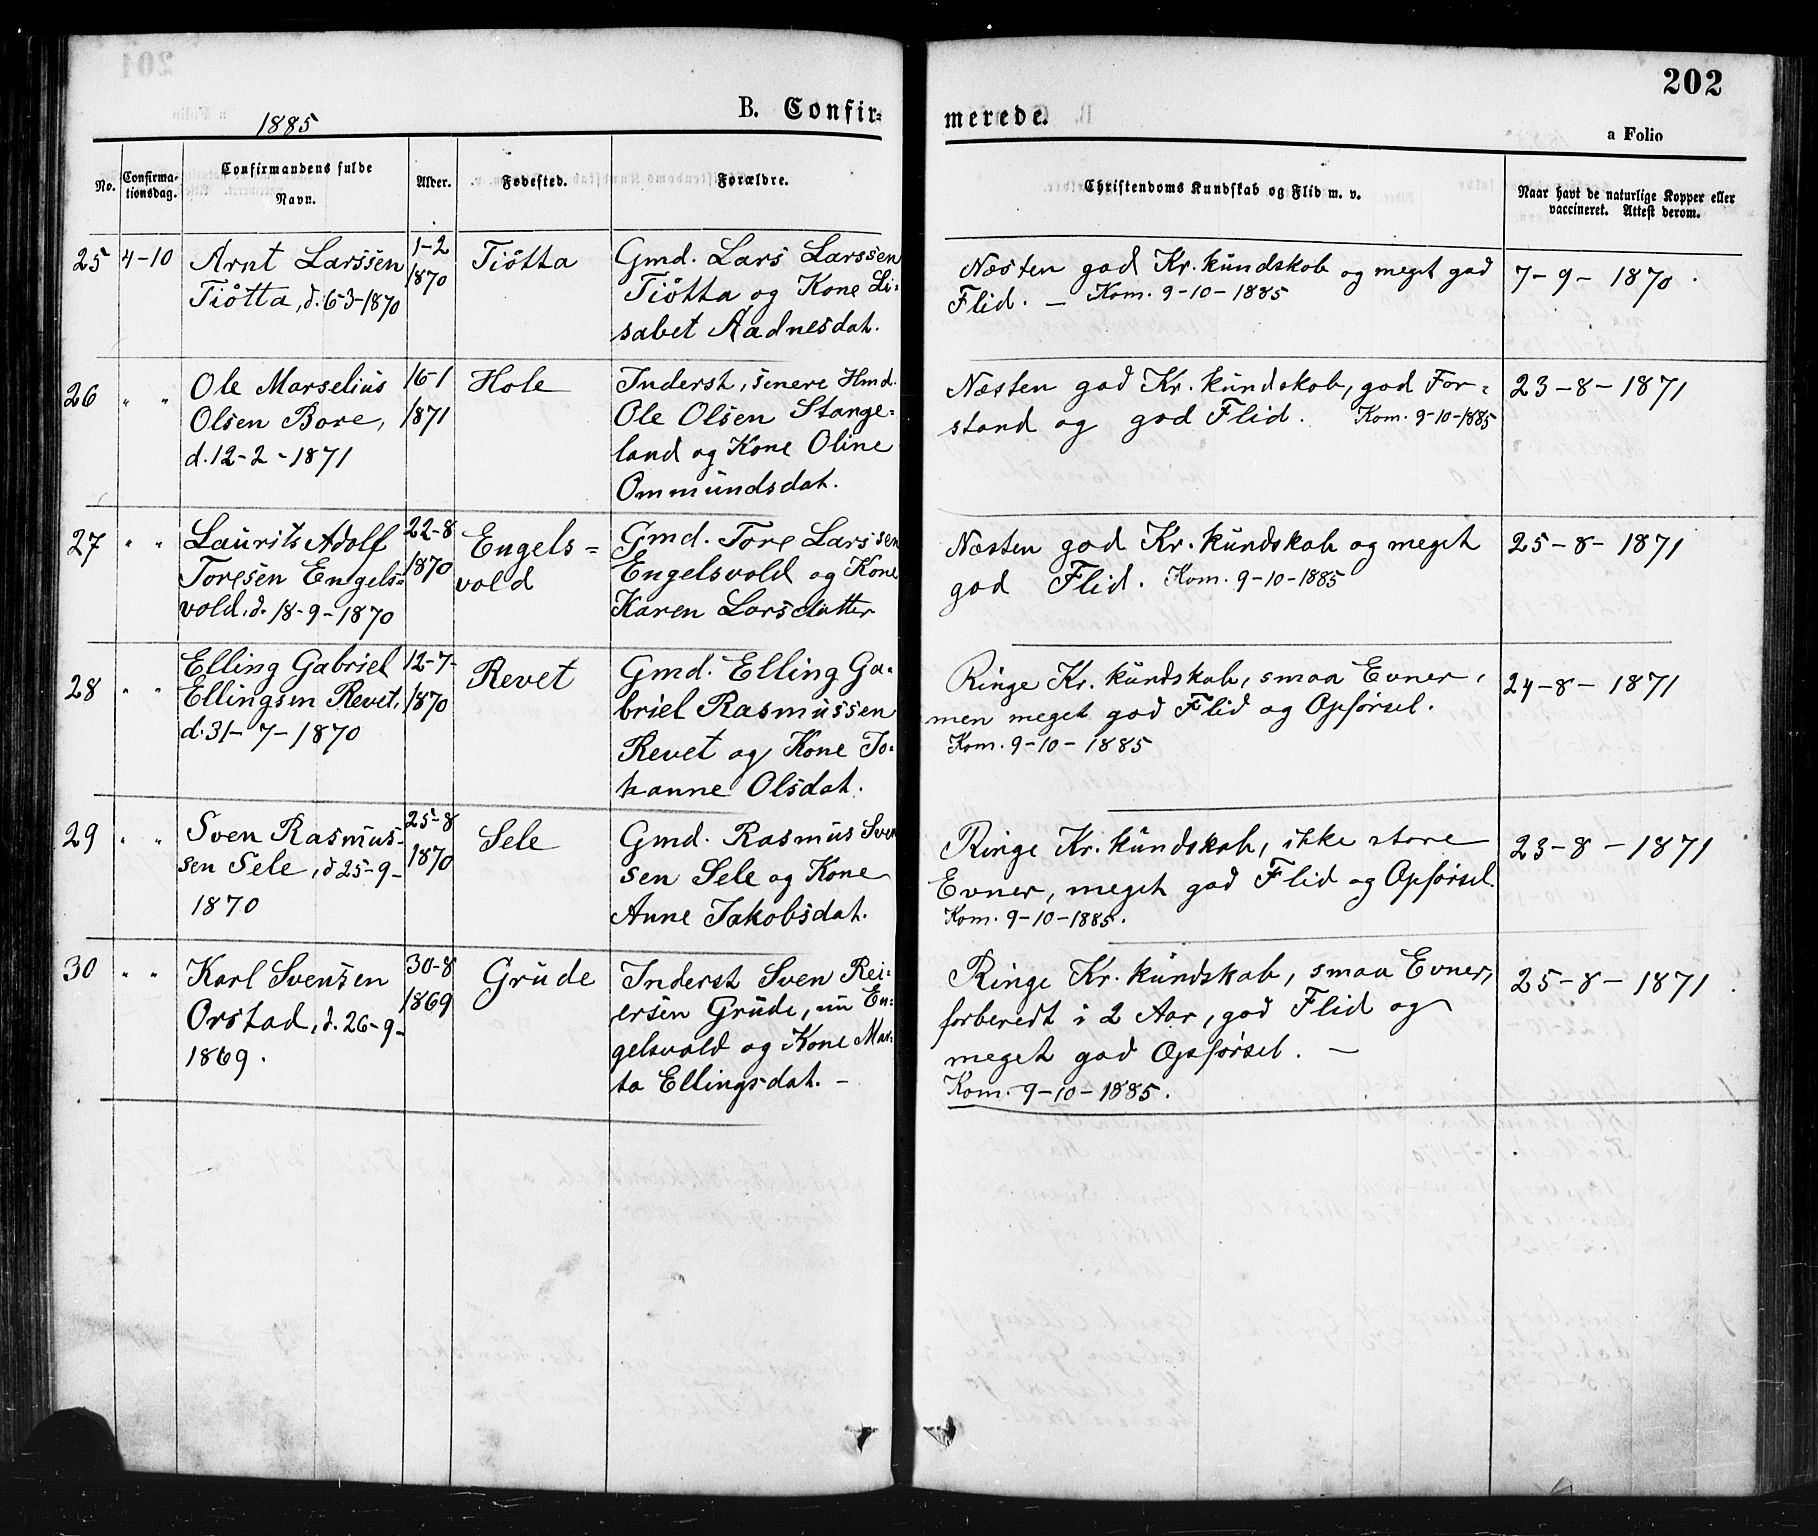 202
1885
B. Confir=
merede.
a Folio
No.
Confirma-
tionsdag.
Confirmandens fulde
Navn.
Alder.
Fødested.
Forældre.
Christendoms Kundskab og Flid m. v.
Naar havt de naturlige Kopper eller
vaccineret. Attest derom.
25 4-10 Arnt Larssen 1-2 Tiøtta Gmd. Lars Larssen Næsten god Kr. kundskab og meget god 7-9-1870.
Tiøtta, d. 6-3-1870 1870 Tiøtta og Kone Li- Flid. — Kom. 9-10-1885
sabet Aadnesdat.
26 " " Ole Marselius 16-1 Hole Inderst, senere Hmd. Næsten god Kr. kundskab, god For- 23-8-1871
Olsen Bore, 1871 Ole Olsen Stange- stand og god Flid. Kom. 9-10-1885
d. 12-2-1871 land og Kone Oline
Ommundsdat.
27 " " Laurits Adolf 22-8 Engels= Gmd. Tore Larssen Næsten god Kr. kundskab og meget 25-8-1871
Toresen Engels= 1870 vold Engelsvold og Kone god Flid. Kom. 9-10-1885
vold, d. 18-9-1870 Karen Larsdatter
28 " " Elling Gabriel 12-7- Revet Gmd. Elling Ga- Ringe Kr. kundskab, smaa Evner, 24-8-1871
Ellingsen Revet, 1870 briel Rasmussen men meget god Flid og Opførsel.
d. 31-7-1870 Revet og Kone Jo- Kom. 9-10-1885
hanne Olsdat.
29 " " Sven Rasmus- 25-8 Sele Gmd. Rasmus Sven Ringe Kr. kundskab, ikke store 23-8-1871
sen Sele, d 25-9- 1870 sen Sele og Kone Evner, meget god Flid og Opførsel.
1870 Anne Jakobsdat. Kom. 9-10-1885.
30 " " Karl Svensen 30-8 Grude Inderst Sven Rei- Ringe Kr. kundskab, smaa Evner, 25-8-1871
Orstad, d. 26-9- 1869 ersen Grude, nu En- forberedt i 2 Aar, god Flid og
1869. gelsvold og Kone Mar- meget god Opførsel. —
ta Ellingsdat. — Kom. 9-10-1885.